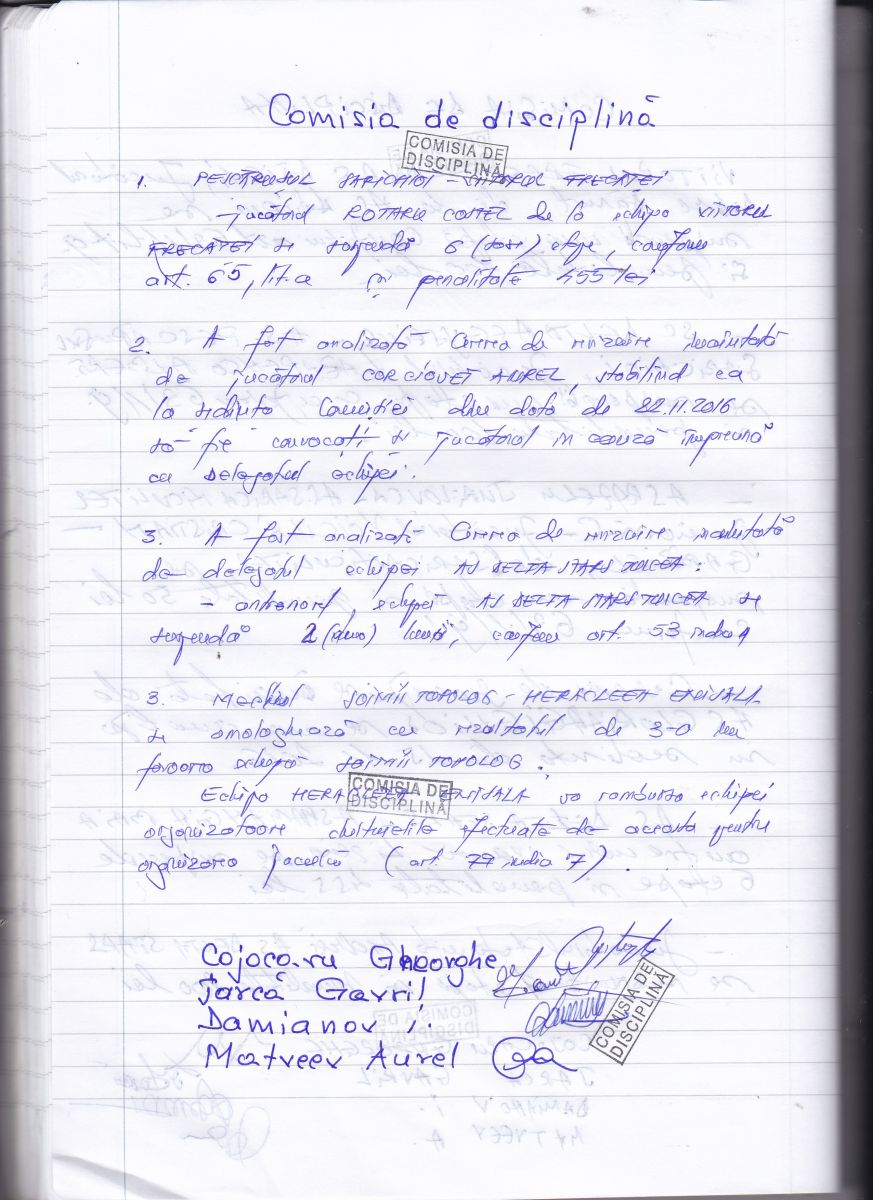 Comisia de disciplină
COMISIA DE
DISCIPLINĂ
1. PESCĂRUȘUL SARICHIOI - VIITORUL FRECĂȚEI
- jucătorul ROTARU COSTEL de la echipa VIITORUL
FRECĂȚEI se suspendă 6 (șase) etape, conform
art. 65, lit. a și penalitate 455 lei
2. A fost analizată Cererea de reexaminare înaintată
de jucătorul CORCIOVEI AUREL, stabilind ca
la ședința Comisiei din data de 22.11.2016
să fie convocați și jucătorul în cauză împreună
cu delegatul echipei.
3. A fost analizată Cererea de înaintată
de delegatul echipei AS DELTA STARS TULCEA:
- antrenorul echipei AS DELTA STARS TULCEA se
suspendă 2 (două) luni, conform art. 53 indice 1
3. Meciul ȘOIMII TOPOLOG - HERACLEEA ENISALA
se omologhează cu rezultatul de 3-0 în
favoarea echipei ȘOIMII TOPOLOG.
Echipa HERACLEEA ENISALA va rambursa echipei
COMISIA DE
DISCIPLINĂ
organizatoare cheltuielile efectuate de aceasta pentru
organizarea jocului (art. 79 indice 7).
Cojocaru Gheorghe
Țarcă Gavril
Damianov I.
Matveev Aurel
COMISIA DE
DISCIPLINĂ